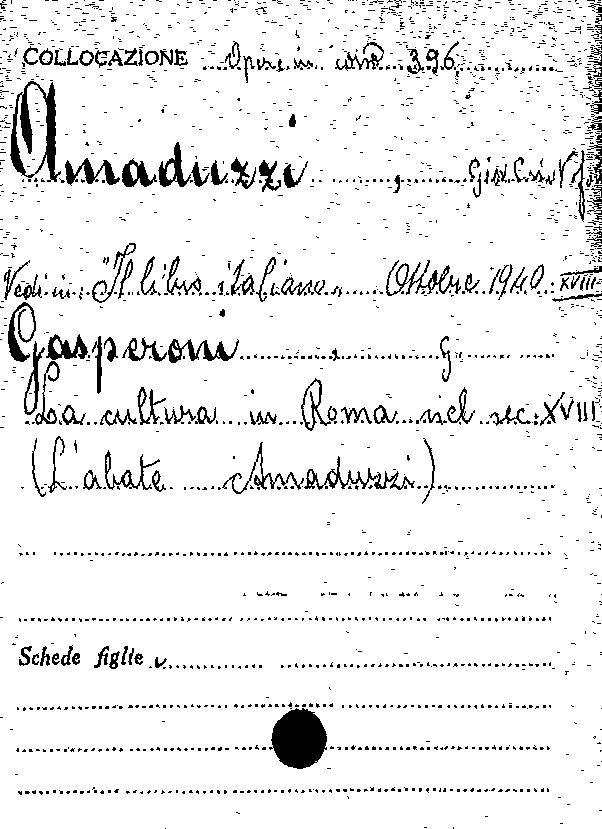 COLLOCAZIONE Opere in corso 396
Amaduzzi , Gian Cristof.
Vedi in: "Il libro italiano" Ottobre 1940. XVIII
Gasperoni , G.
La cultura in Roma nel sec. XVIII
(L'abate Amaduzzi)
Schede figlie